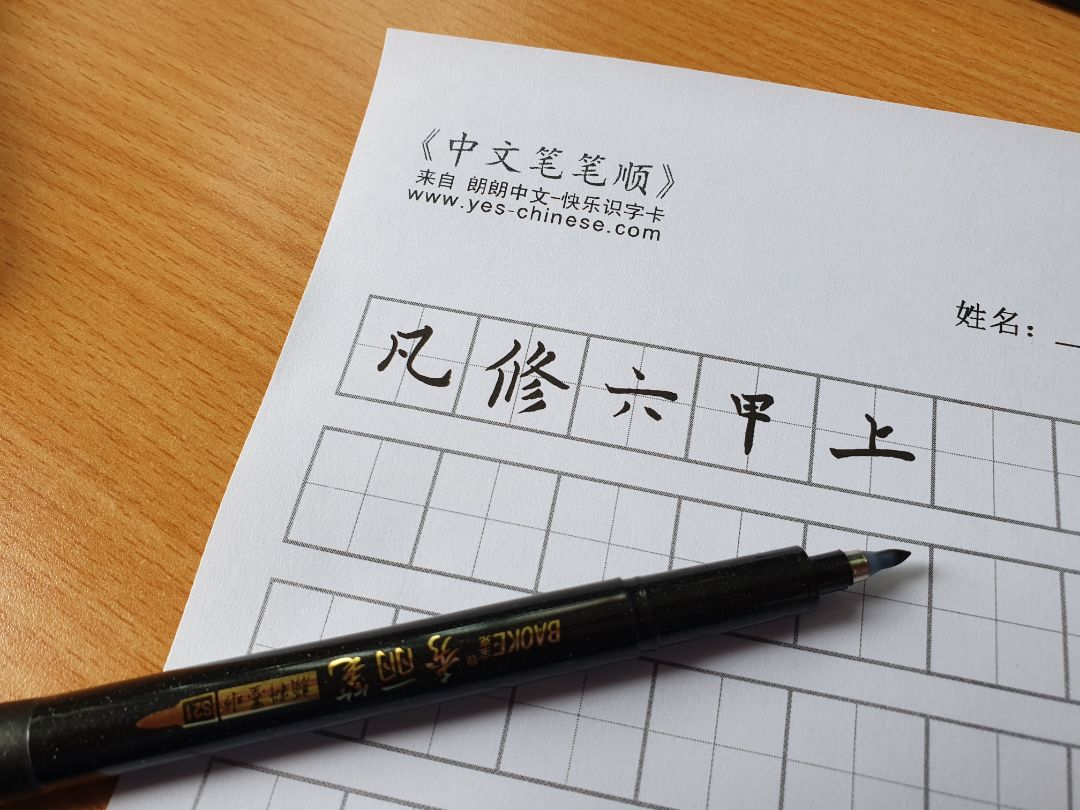 《中文笔笔顺》
来自 朗朗中文-快乐识字卡
www.yes-chinese.com
姓名：
凡修六甲上
BAOKE
秀丽笔
S21